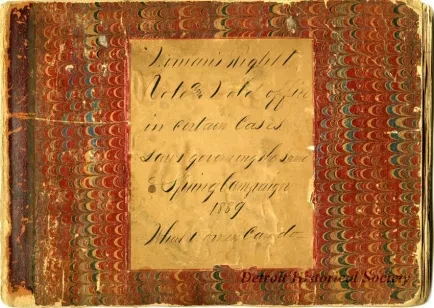 Woman's right
Vote & hold office
in certain Cases
Laws governing the same
Spring Campaign
1889
What women can do
Detroit Historical Society